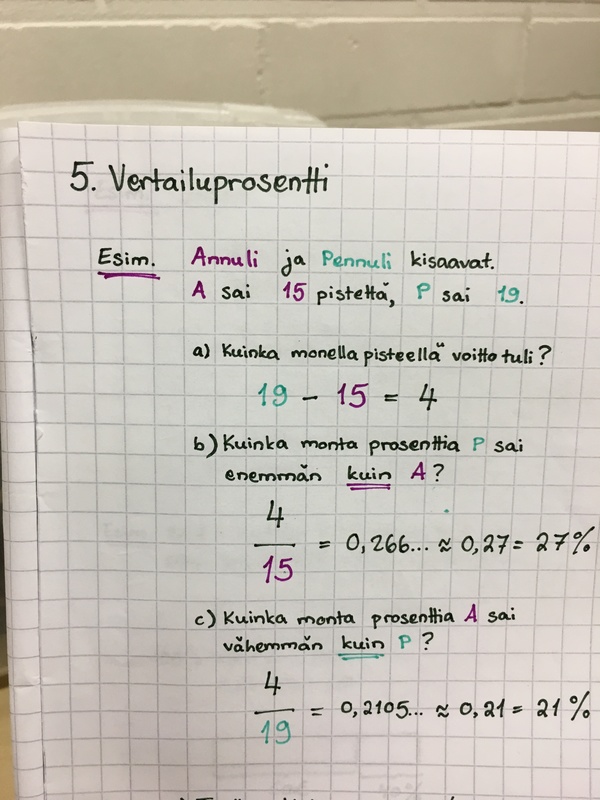 5. Vertailuprosentti
Esim. Annuli ja Pennuli kisaavat.
A sai 15 pistettä, P sai 19.
a) Kuinka monella pisteellä voitto tuli?
19 - 15 = 4
b) Kuinka monta prosenttia P sai
enemmän kuin A?
4
15 = 0,266... ≈ 0,27 = 27%
c) Kuinka monta prosenttia A sai
vähemmän kuin P?
4
19 = 0,2105... ≈ 0,21 = 21%